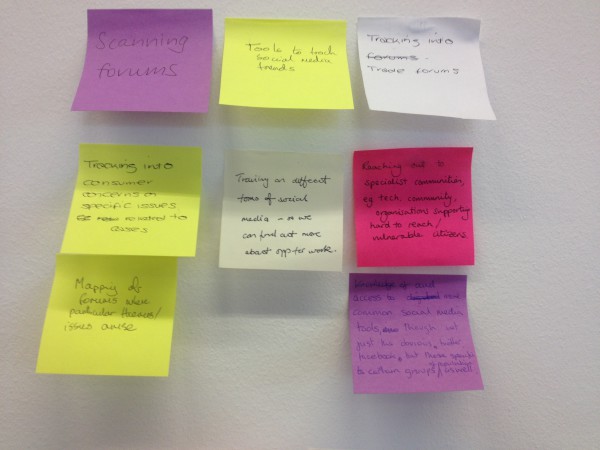 Scanning
forums
Tools to track
social media
trends
Tracking into
forums.
Trade forums
Tracking into
consumer
concerns or
specific issues
related to
cases
Training on different
forms of social
media - so we
can find out more
about opp for work.
Reaching out to
specialist communities,
eg tech, community,
organisations supporting
hard to reach/
vulnerable citizens.
Mapping of
forums where
particular themes/
issues arise
knowledge of and
access to
common social media
tools, Though not
just the obvious, twitter
facebook, but those specific
to certain groups as well